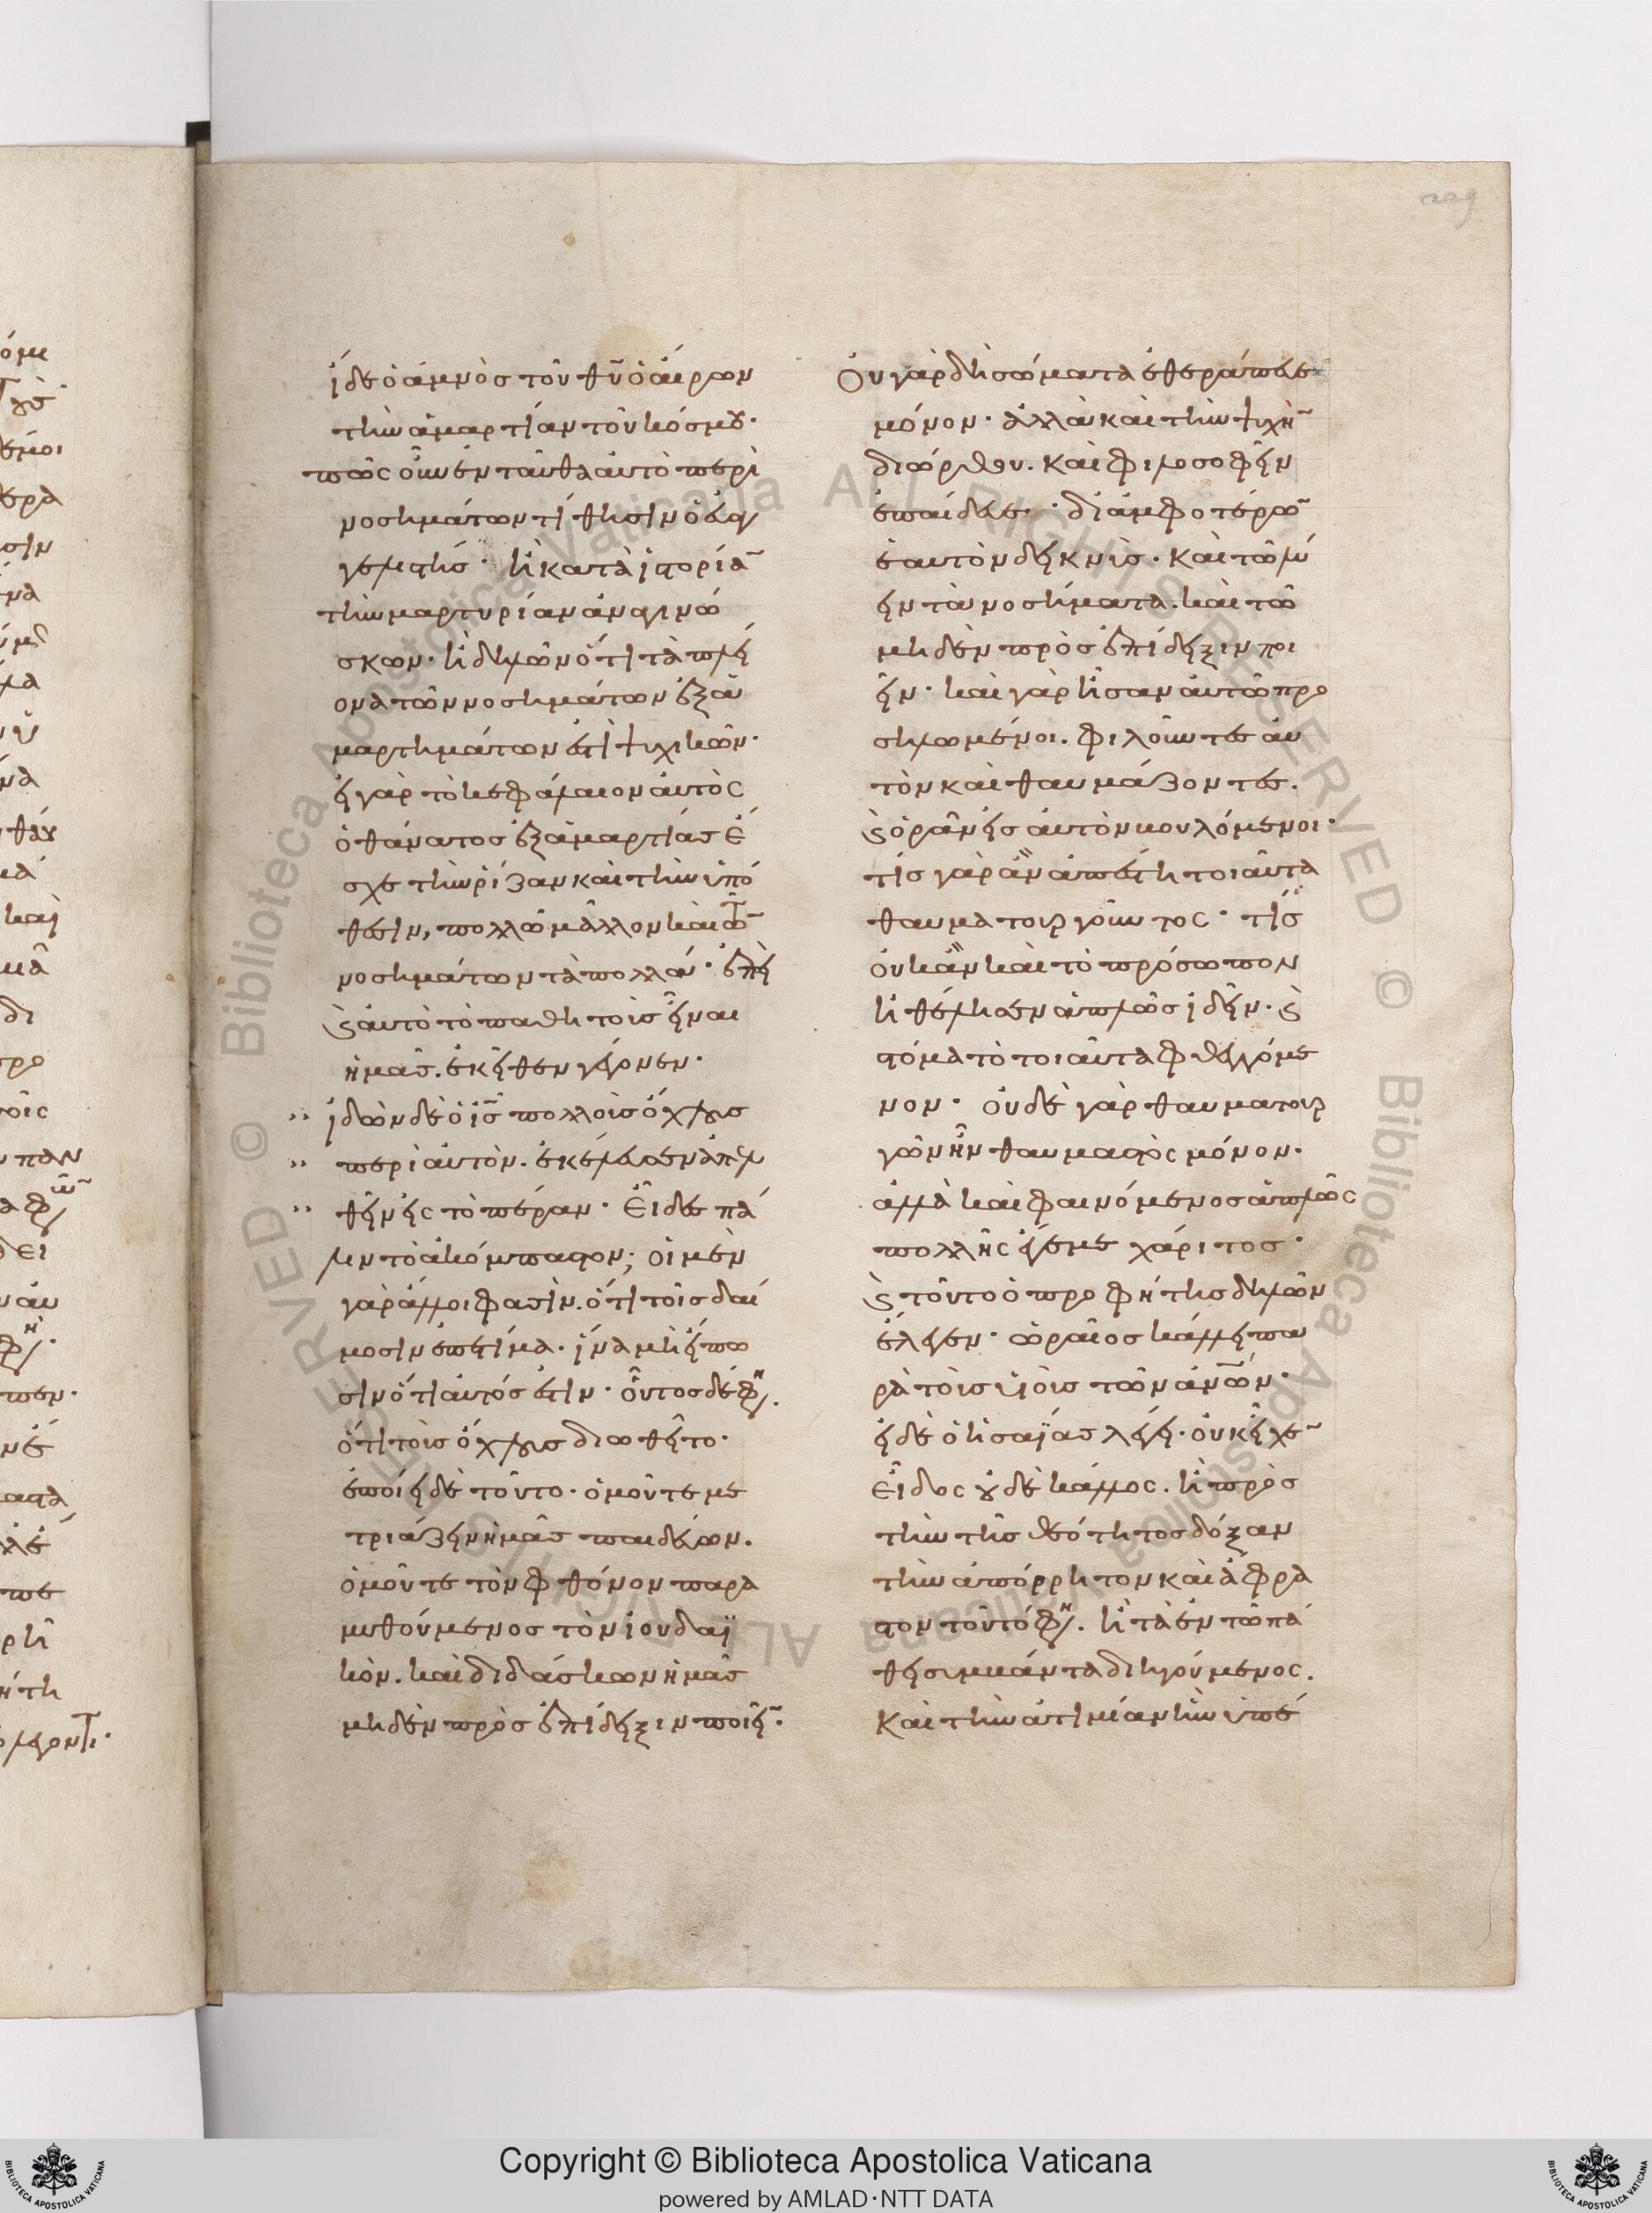 ἴδε ὁ ἀμνὸς τοῦ θυ ὁ αἴρων
τὴν ἁμαρτίαν τοῦ κόσμου·
πῶς οὖν ἐνταῦθα αὐτὸ περὶ
νοσημάτων τίθησιν ὁ εὐαγ
γελιστής· ἢ κατὰ ἱστορία̅
τὴν μαρτυρίαν ἀναγινώ
σκων· ἢ δηλῶν ὅτι τὰ πλεί
ονα τῶν νοσημάτων ἐξ ἁ
μαρτημάτων ἐστὶ ψυχικῶν·
εἰ γὰρ τὸ κεφάλαιον αὐτὸς
ὁ θάνατος ἐξ ἁμαρτίας ἔ
σχε τὴν ῥίζαν καὶ τὴν ὑπό
θεσιν, πολλῷ μᾶλλον καὶ τῶ̅
νοσημάτων τὰ πολλά· ἐπεὶ
καὶ αὐτὸ τὸ παθητοὺς εἶναι
ἡμᾶς. ἐκεῖθεν γέγονεν·
ἰδὼν δὲ ὁ ις πολλοὺς ὄχλους
περὶ αὐτὸν. ἐκέλευσεν ἀπελ
θεῖν εἰς τὸ πέραν· Εἶδες πά
λιν τὸ ἀκόμπαστον; οἱ μὲν
γὰρ ἄλλοι φασὶν. ὅτι τοῖς δαί
μοσιν ἐπετίμα· ἵνα μὴ εἴπω
σιν ὅτι αὐτός ἐστιν· οὗτος δέ φη.
ὅτι τοὺς ὄχλους διωθεῖτο·
ἐποίει δὲ τοῦτο· ὁμοῦ τε με
τριάζειν ἡμᾶς παιδεύων.
ὁμοῦ τε τὸν φθόνον παρα
μυθούμενος τὸν ἰουδαϊ
κὸν. καὶ διδάσκων ἡμᾶς
μηδὲν πρὸς ἐπίδειξιν ποιεῖ̅·
Οὐ γὰρ δὴ σώματα ἐθεράπευε̅
μόνον· ἀλλὰ καὶ τὴν ψυχὴ̅
διώρθου. καὶ φιλοσοφεῖν
ἐπαίδευε· δι' ἀμφοτέρω̅
ἑαυτὸν δεικνύς. καὶ τῷ λύ
ειν τὰ νοσήματα. καὶ τῷ
μηδὲν πρὸς ἐπίδειξιν ποι
εῖν· καὶ γὰρ ἦσαν αὐτῷ προ
σηλωμένοι. φιλοῦντες αὐ
τὸν καὶ θαυμάζοντες.
καὶ ὁρᾶν εἰς αὐτὸν βουλόμενοι·
τίς γὰρ ἂν ἀπέστη τοιαῦτα
θαυματουργοῦντος· τίς
οὐκ ἂν καὶ τὸ πρόσωπον
ἠθέλησεν ἁπλῶς ἰδεῖν· καὶ
στόμα τὸ τοιαῦτα φθεγγόμε
νον· οὐδὲ γὰρ θαυματουρ
γῶν ἦν θαυμαστὸς μόνον·
ἀλλὰ καὶ φαινόμενος ἁπλῶς
πολλῆς ἔγεμε χάριτος·
καὶ τοῦτο ὁ προφήτης δηλῶν
ἔλεγεν· ὡραῖος κάλλει πα
ρὰ τοὺς υἱοὺς τῶν ἀνων·
εἰ δὲ ὁ ἡσαΐας λέγει· οὐκ εἶχε̅
εἶδος οὐδὲ κάλλος. ἢ πρὸς
τὴν τῆς θεότητος δόξαν
τὴν ἀπόρρητον καὶ ἄφρα
στον τοῦτό φη. ἢ τὰ ἐν τῷ πά
θει συμβάντα διηγούμενος.
καὶ τὴν ἀτιμίαν ἣν ὑπέ
Copyright © Biblioteca Apostolica Vaticana
powered by AMLAD·NTT DATA